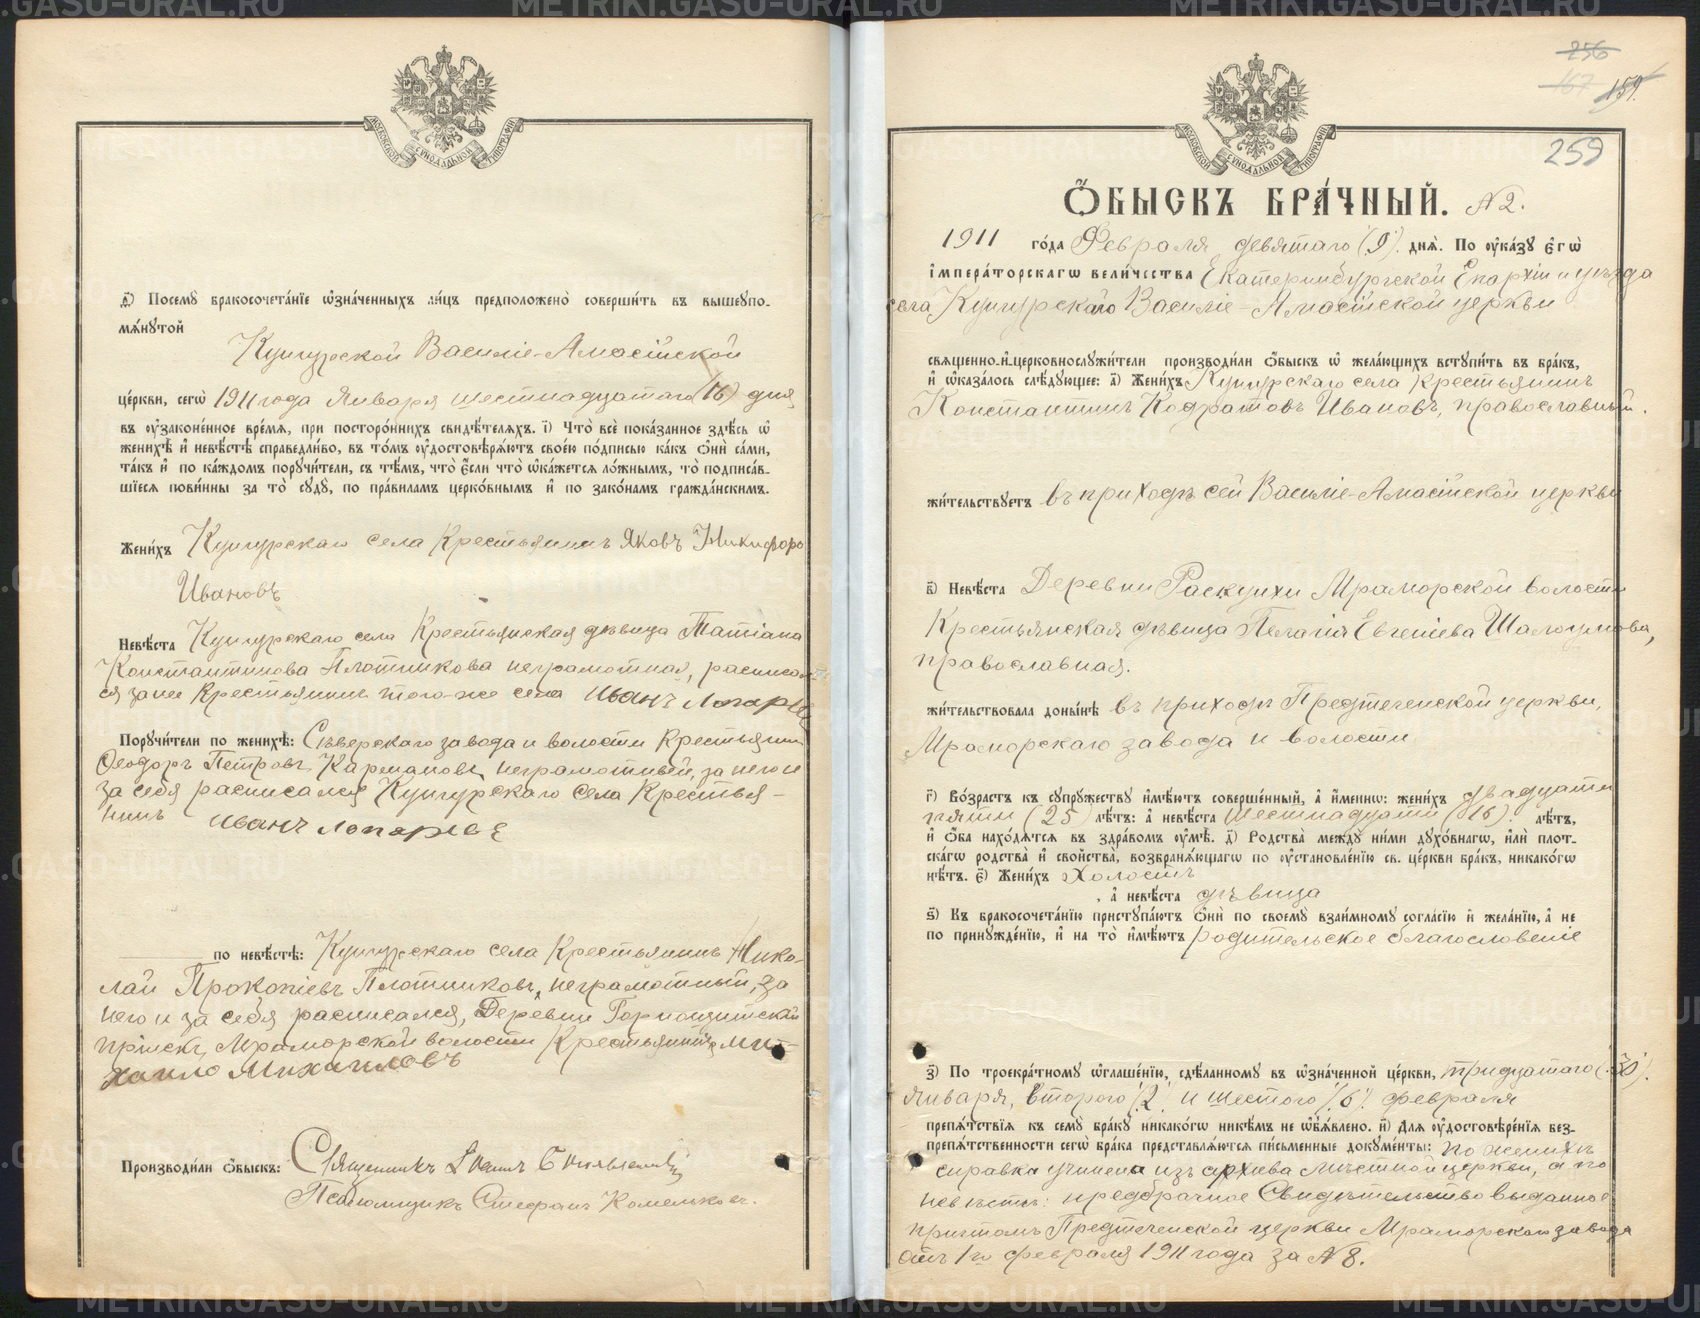 МОСКОВСКОЙ СѴНОДАЛЬНОЙ ТИПОГРАФІИ
д҃) Посемꙋ̀ бракосочета́нїе ѡ҆зна́ченныхъ ли́цъ предположено̀ соверши́ть въ вышеꙋпо-
мѧ́нꙋтой
Кунгурской Василіе-Амасійской
це́ркви, сегѡ̀ 1911 года Января шестнадцатаго (16) дня
въ ᲂу҆зако́ненное вре́мѧ, при посторо́ннихъ свидѣ́телѧхъ. і҃) Что̀ всѐ пока́занное здѣ́сь ѡ҆
женихѣ̀ и҆ невѣ́стѣ справедли́во, въ то́мъ ᲂу҆достовѣрѧ́ютъ свое́ю по́дписью ка́къ ѻ҆нѝ са́ми,
та́къ и҆ по ка́ждомъ порꙋчи́тели, съ тѣ́мъ, что̀ є҆́сли что̀ ѡ҆ка́жется ло́жнымъ, то̀ подписа́в-
шїеся пови́нны за то̀ сꙋдꙋ̀, по пра́виламъ церко́внымъ и҆ по зако́намъ гражда́нскимъ.
Жени́хъ Кунгурскаго села Крестьянинъ Яковъ Никифоро
Ивановъ
Невѣ́ста Кунгурскаго села Крестьянская дѣвица Татіана
Константинова Плотникова неграмотная, расписал
ся за нее Крестьянинъ того-же села Иванъ Лопарев
Порꙋчи́тели по женихѣ̀: Сѣверскаго завода и волости Крестьянин
Ѳеодоръ Петровъ Кармановъ неграмотный, за него и
за себя расписался Кунгурскаго села Крестья-
нинъ Иванъ Лопаревъ
по невѣ́стѣ: Кунгурскаго села Крестьянинъ Нико-
лай Прокопіевъ Плотниковъ, неграмотный, за
него и за себя расписался, Деревни Горнощитскій
пріискъ, Мраморской волости Крестьянинъ Ми-
хаило Михаиловъ
Производи́ли ѻ҆́быскъ: Священникъ
Псаломщикъ Стефанъ Комельковъ.
256
167 159.
МОСКОВСКОЙ СѴНОДАЛЬНОЙ ТИПОГРАФІИ
259
Ѻ҆́БЫСКЪ БРА́ЧНЫЙ. № 2.
1911 го́да Февраля девятаго (9) днѧ̀. По ᲂу҆ка́зꙋ є҆гѡ̀
і҆мпера́торскагѡ вели́чества Екатеринбургской Епархіи и уѣзда
села Кунгурскаго Василіе-Амасійской церкви
свяще́нно-и҆-церковнослꙋжи́тели производи́ли ѻ҆́быскъ ѡ҆ жела́ющихъ встꙋпи́ть въ бра́къ,
и҆ ѡ҆каза́лось слѣ́дꙋющее: а҃) Жени́хъ Кунгурскаго села Крестьянинъ
Константинъ Кодратовъ Ивановъ, православный.
жи́тельствꙋетъ въ приходѣ сей Василіе-Амасійской церкви
в҃) Невѣ́ста Деревни Раскуихи Мраморской волости
Крестьянская дѣвица Пелагія Евгеніева Шалоумова,
православная.
жи́тельствовала доны́нѣ въ приходѣ Предтеченской церкви,
Мраморскаго завода и волости
г҃) Во́зрастъ къ сꙋпрꙋ́жествꙋ и҆мѣ́ютъ соверше́нный, а҆ и҆́меннѡ: жени́хъ двадцати
пяти (25) лѣ́тъ: а҆ невѣ́ста шестнадцати (16). лѣ́тъ,
и҆ ѻ҆́ба нахо́дятся въ здра́вомъ ᲂу҆мѣ̀. д҃) Родства̀ междꙋ̀ ни́ми дꙋхо́внагѡ, и҆лѝ плот-
ска́гѡ родства̀ и҆ сво́йства̀, возбраня́ющагѡ по ᲂу҆становле́нїю св. це́ркви бра́къ, никако́гѡ
нѣ́тъ. є҃) Жени́хъ Холостъ
, а҆ невѣ́ста дѣвица
ѕ҃) Къ бракосочета́нїю пристꙋпа́ютъ ѻ҆нѝ по своемꙋ̀ взаи́мномꙋ согла́сїю и҆ жела́нїю, а҆ не
по принꙋжде́нїю, и҆ на то̀ и҆мѣ́ютъ родительское благословеніе
з҃) По троекра́тномꙋ ѡ҆глаше́нїю, сдѣ́ланномꙋ въ ѡ҆зна́ченной це́ркви, тридцатаго (30).
Января, второго (2) и шестого (6) февраля
препѧ́тствїя къ семꙋ̀ бра́кꙋ никако́гѡ никѣ́мъ не ѡ҆б̾ѧ́влено. и҃) Для ᲂу҆достовѣре́нїя без-
препѧ́тственности сегѡ̀ бра́ка представля́ются пи́сьменные докꙋме́нты: по женихѣ
справка учинена изъ архива мѣстной церкви, а по
невѣстѣ: предбрачное Свидѣтельство выданное
причтомъ Предтеченской церкви Мраморскаго завода
отъ 1го февраля 1911 года за № 8.
METRIKI.GASU-URAL.RU